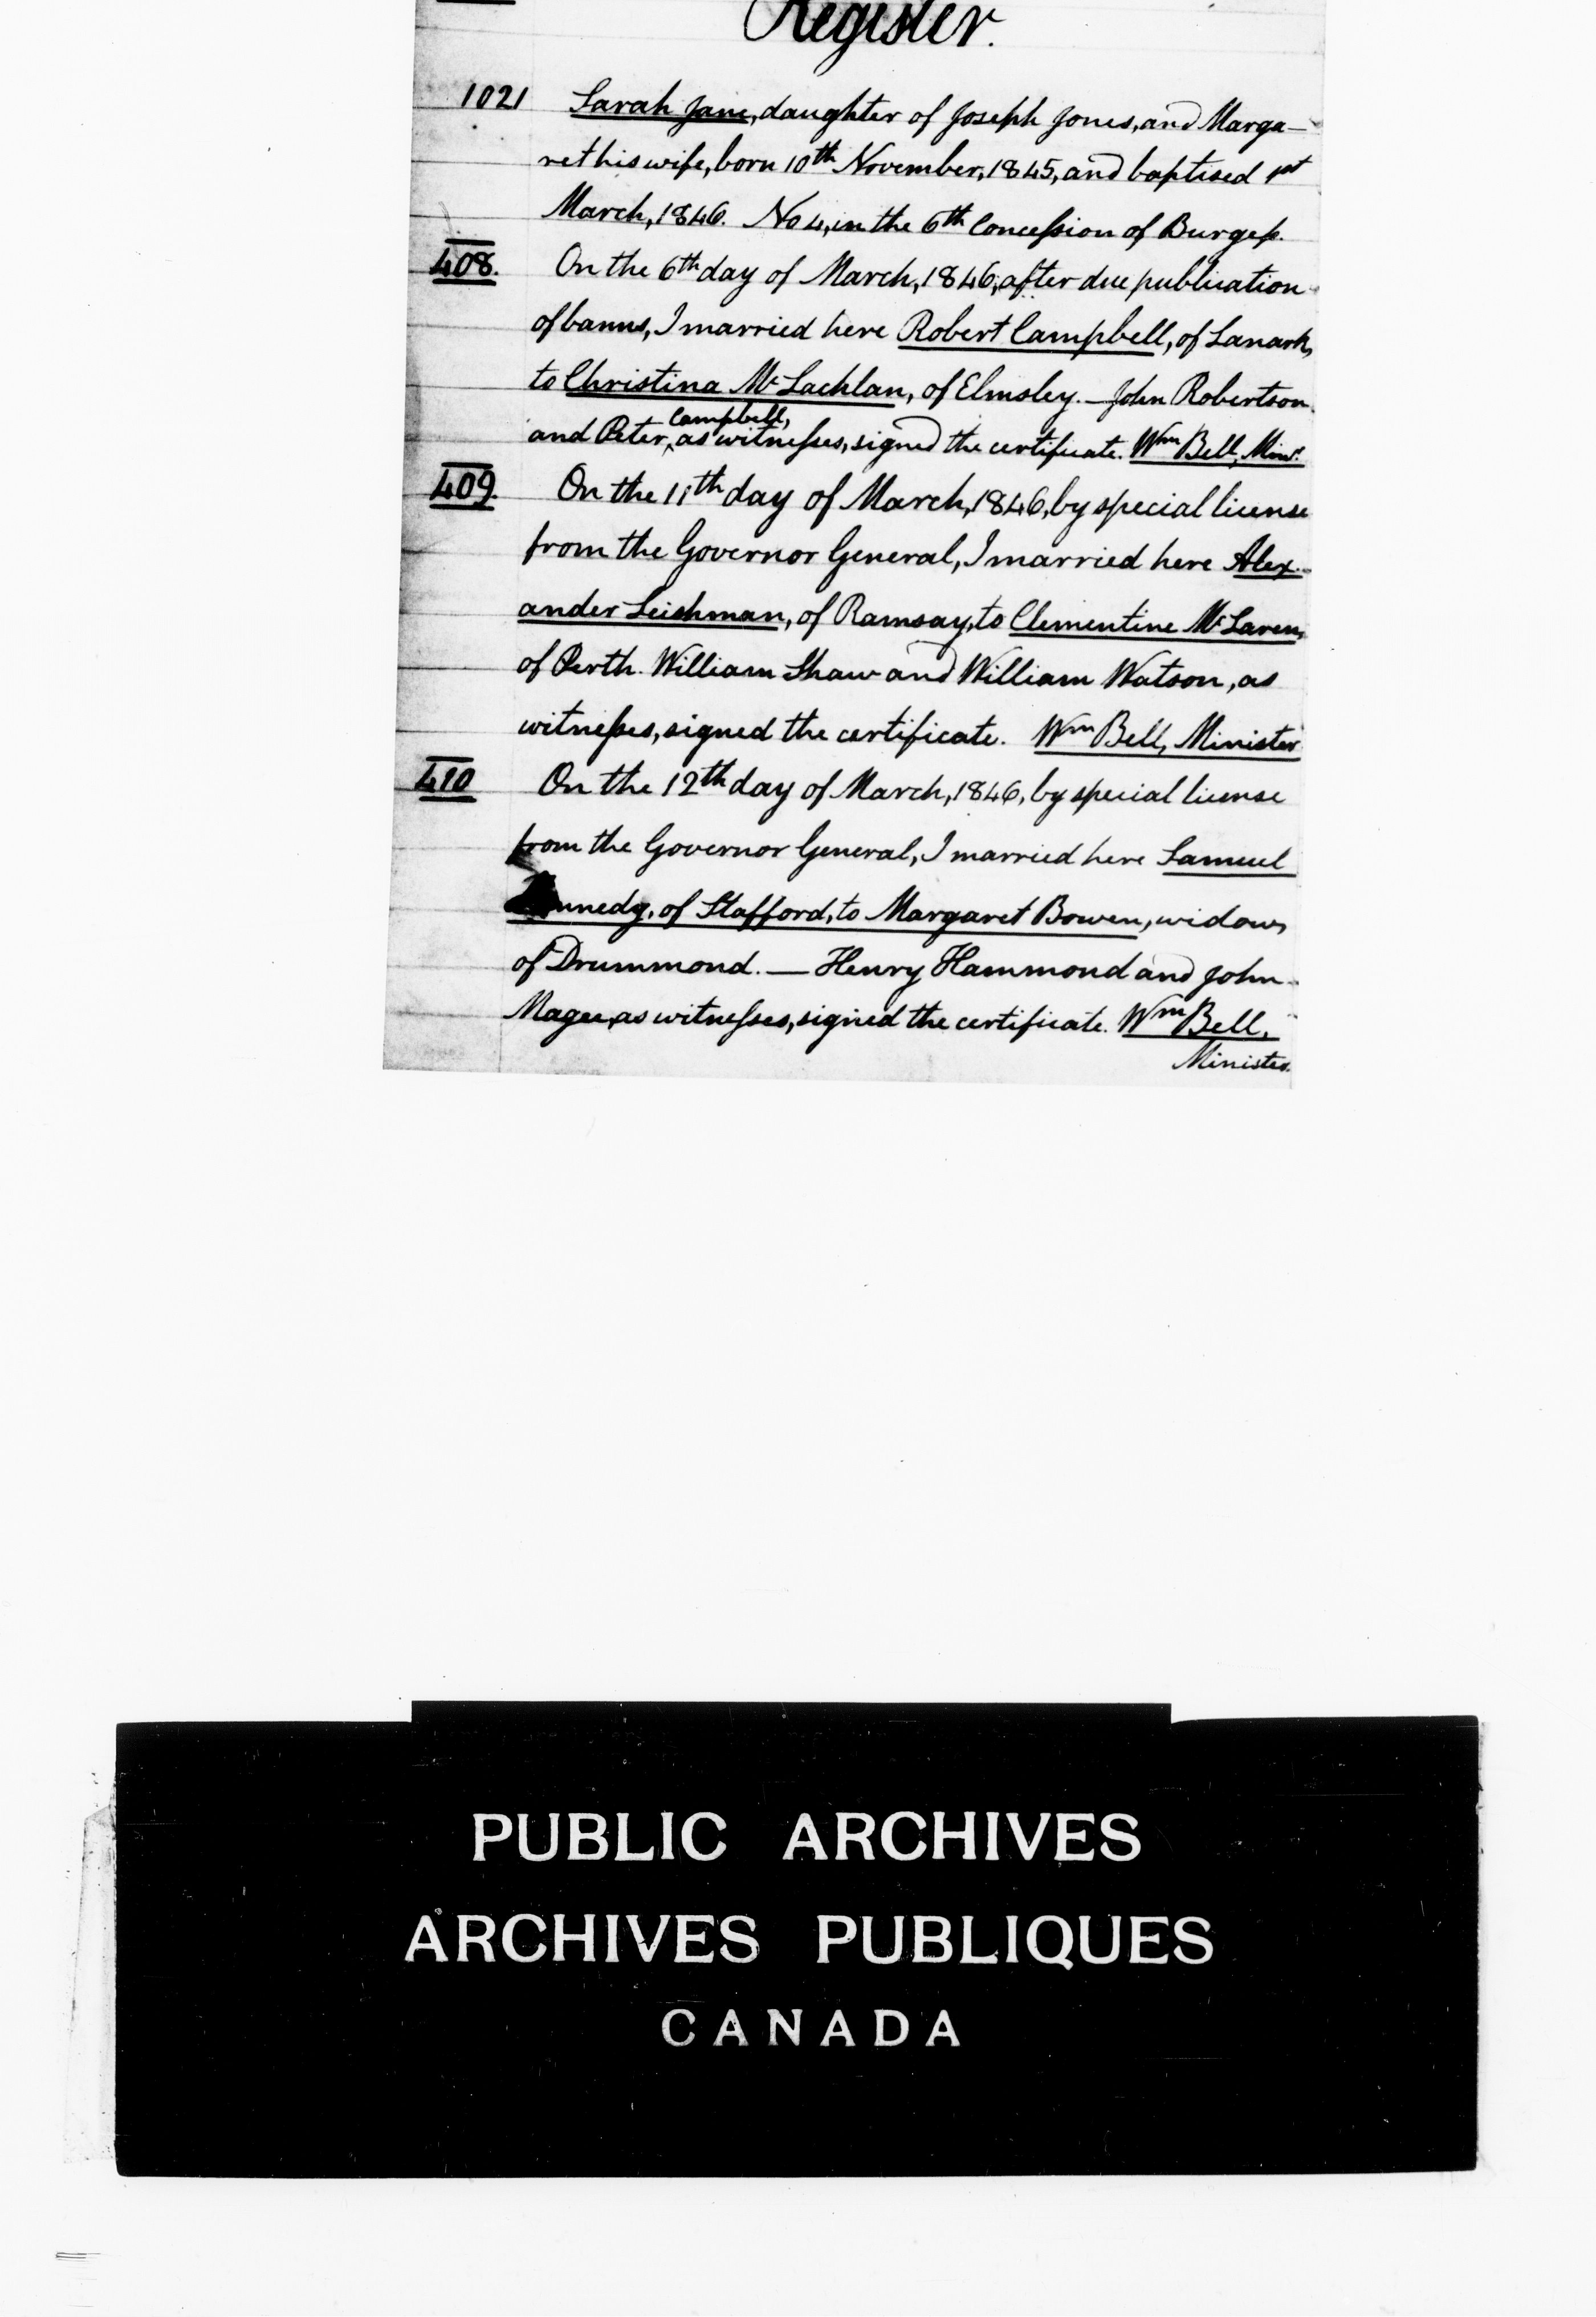 Register.
1021 Sarah Jane, daughter of Joseph Jones, and Marga-
ret his wife, born 10th November, 1845, and baptised 1st
March, 1846. No 4, in the 6th Concession of Burgess.
408. On the 6th day of March, 1846, after due publication
of banns, I married here Robert Campbell, of Lanark,
to Christina McLachlan, of Elmsley. — John Robertson
and Peter Campbell, as witnesses, signed the certificate. Wm Bell, Minr.
409. On the 11th day of March, 1846, by special license
from the Governor General, I married here Alex-
ander Leishman, of Ramsay, to Clementine McLaren,
of Perth. William Shaw and William Watson, as
witnesses, signed the certificate. Wm Bell, Minister
410 On the 12th day of March, 1846, by special license
from the Governor General, I married here Samuel
of Stafford, to Margaret Bowen, widow,
of Drummond. — Henry Hammond and John
Magee, as witnesses, signed the certificate. Wm Bell,
Minister.
PUBLIC ARCHIVES
ARCHIVES PUBLIQUES
CANADA